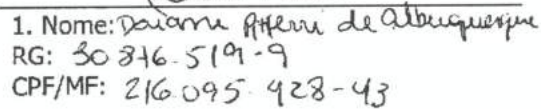 1. Nome: Daiane de Albuquerque
RG: 30 846.519-9
CPF/MF: 216.095.428-43